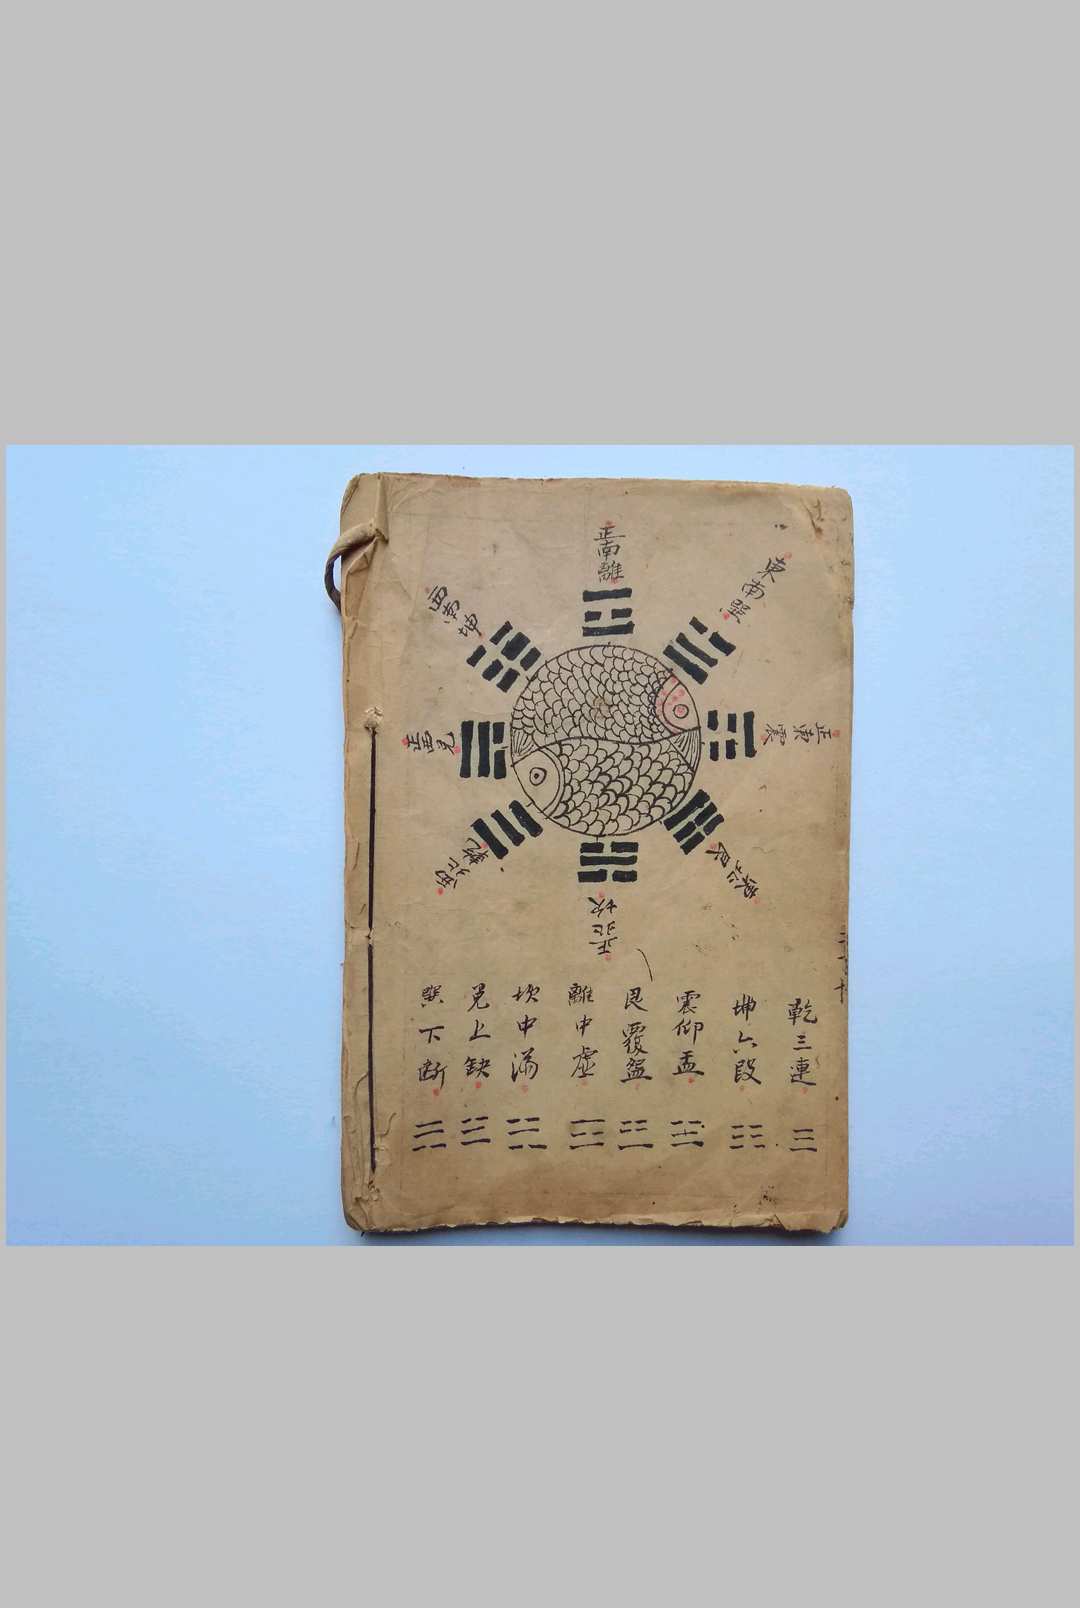 正南離
東南巽
正東震
東北艮
正北坎
西北乾
正西兌
西南坤
乾三連
坤六段
震仰盂
艮覆盌
離中虛
坎中滿
兌上缺
巽下断